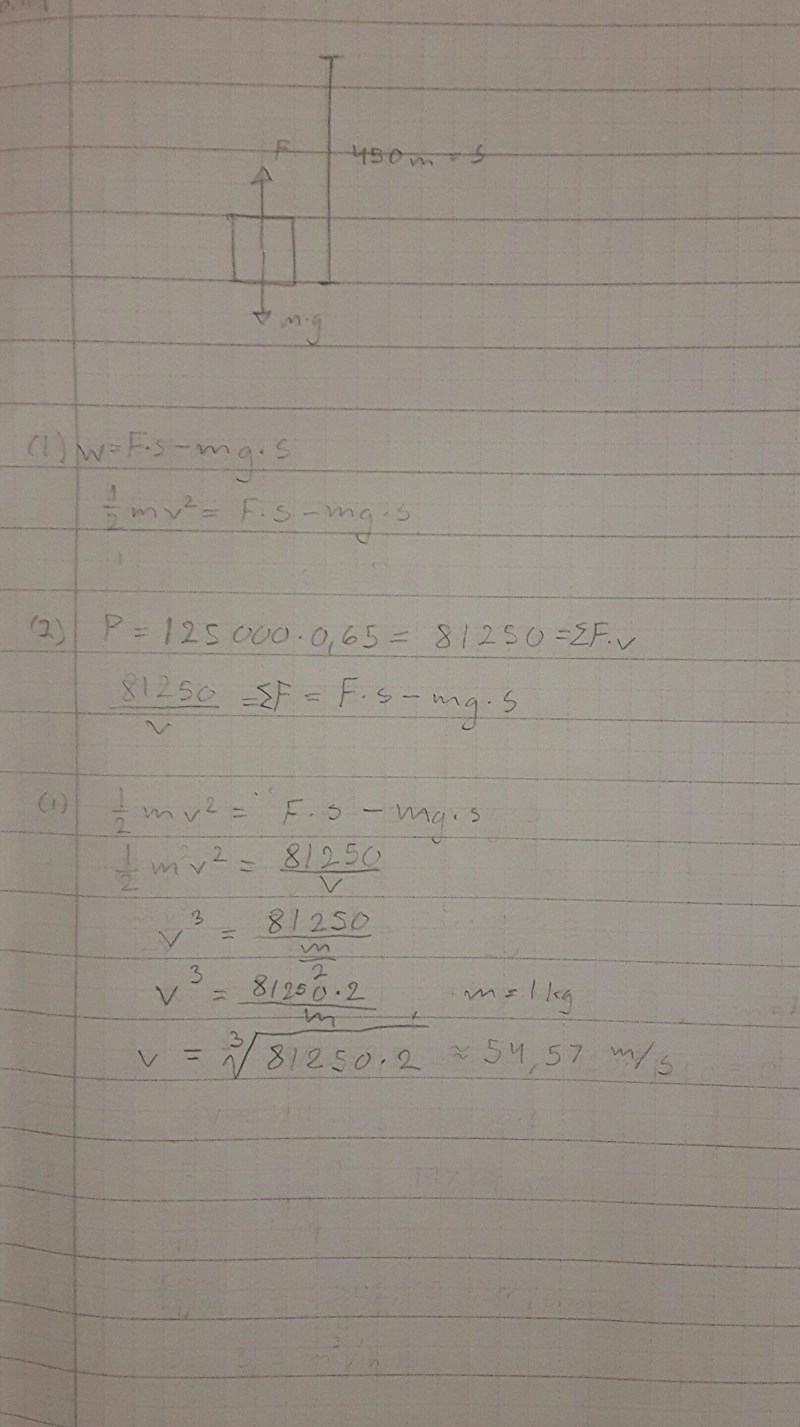 F
450 m = s
m·g
(1) W = F·s - mg·s
½ mv² = F·s - mg·s
(2) P = 125 000 · 0,65 = 81250 = ΣF·v
81250/v = ΣF = F·s - mg·s
(1) ½ mv² = F·s - mg·s
½ mv² = 81250/v
v³ = 81250/(m/2)
v³ = 81250·2/m , m = 1 kg
v = ∛(81250·2) ≈ 54,57 m/s